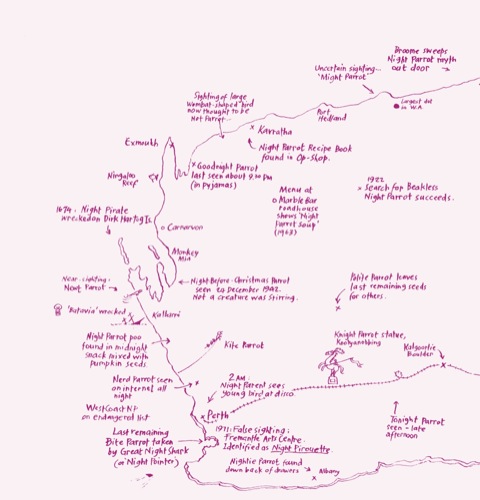 Broome sweeps
Night Parrot myth
out door
Uncertain sighting...
'Might Parrot'
Largest dot
in W.A
Sighting of large
Wombat-shaped bird
now thought to be
Not Parrot
Port
Hedland
Karratha
Night Parrot Recipe Book
found in Op-Shop.
Exmouth
Ningaloo
Reef
Goodnight Parrot
last seen about 9.20 PM
(in Pyjamas)
Menu at
Marble Bar
roadhouse
shows 'Night
Parrot Soup'
(1963)
1922
Search for Beakless
Night Parrot succeeds.
1674. Night Pirate
wrecked on Dirk Hartog Is.
Carnarvon
Monkey
Mia
Near-Sighting:
Next Parrot
Night Before Christmas Parrot
seen 24 December 1942.
Not a creature was stirring.
Polite Parrot leaves
last remaining seeds
for others.
'Batavia' wrecked
Kalbarri
Night Parrot poo
found in midnight
snack mixed with
pumpkin seeds
Kite Parrot
Knight Parrot statue,
Kalgoorlie
Boulder
Nerd Parrot seen
on internet all
night
2 AM
Night Parent sees
young bird at disco
West Coast NP
on endangered list
Perth
Last remaining
Bite Parrot taken
by Great Night Shark
(or 'Night Pointer')
1971: False sighting:
Fremantle Arts Centre.
Identified as Night Pirouette.
Tonight Parrot
seen - late
afternoon
Nightie Parrot found
down back of drawers
Albany